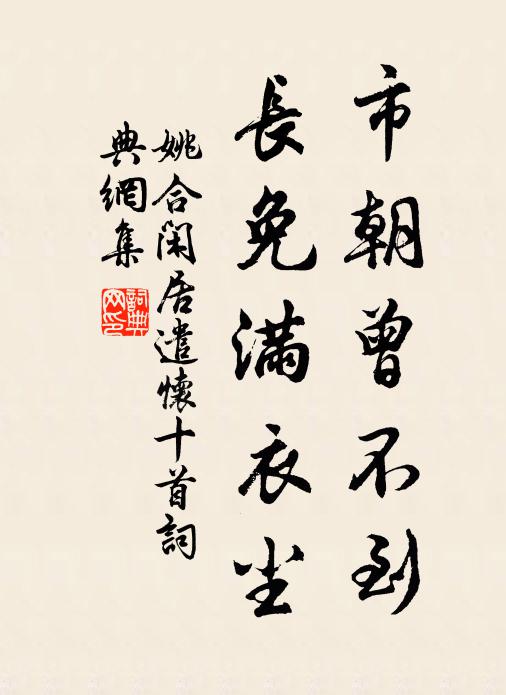 市朝曾不到
長免滿衣尘
姚合閑居遣懷十首詞
典網集
詞典
网印